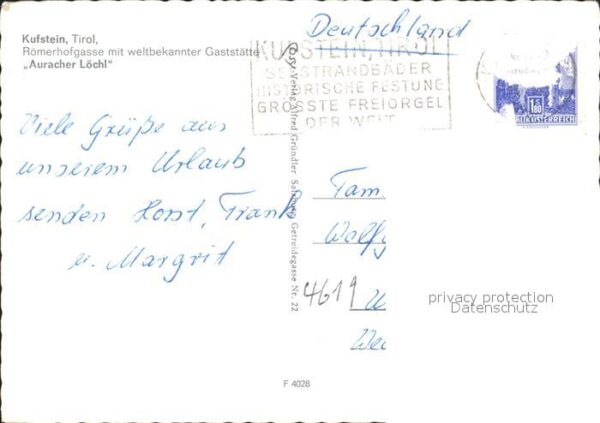 Kufstein, Tirol,
Römerhofgasse mit weltbekannter Gaststätte
„Auracher Löchl"
Deutschland
KUFSTEIN, TIROL
SEESTRANDBÄDER
HISTORISCHE FESTUNG
GRÖSSTE FREIORGEL
DER WELT
1.80
REPUBLIK ÖSTERREICH
Viele Grüße aus
unserem Urlaub
senden Horst, Frank
u. Margrit
Verlag Alfred Gründler Salzburg Getreidegasse Nr. 22
Fam
Wolfg
4619
privacy protection
Datenschutz
F 4028